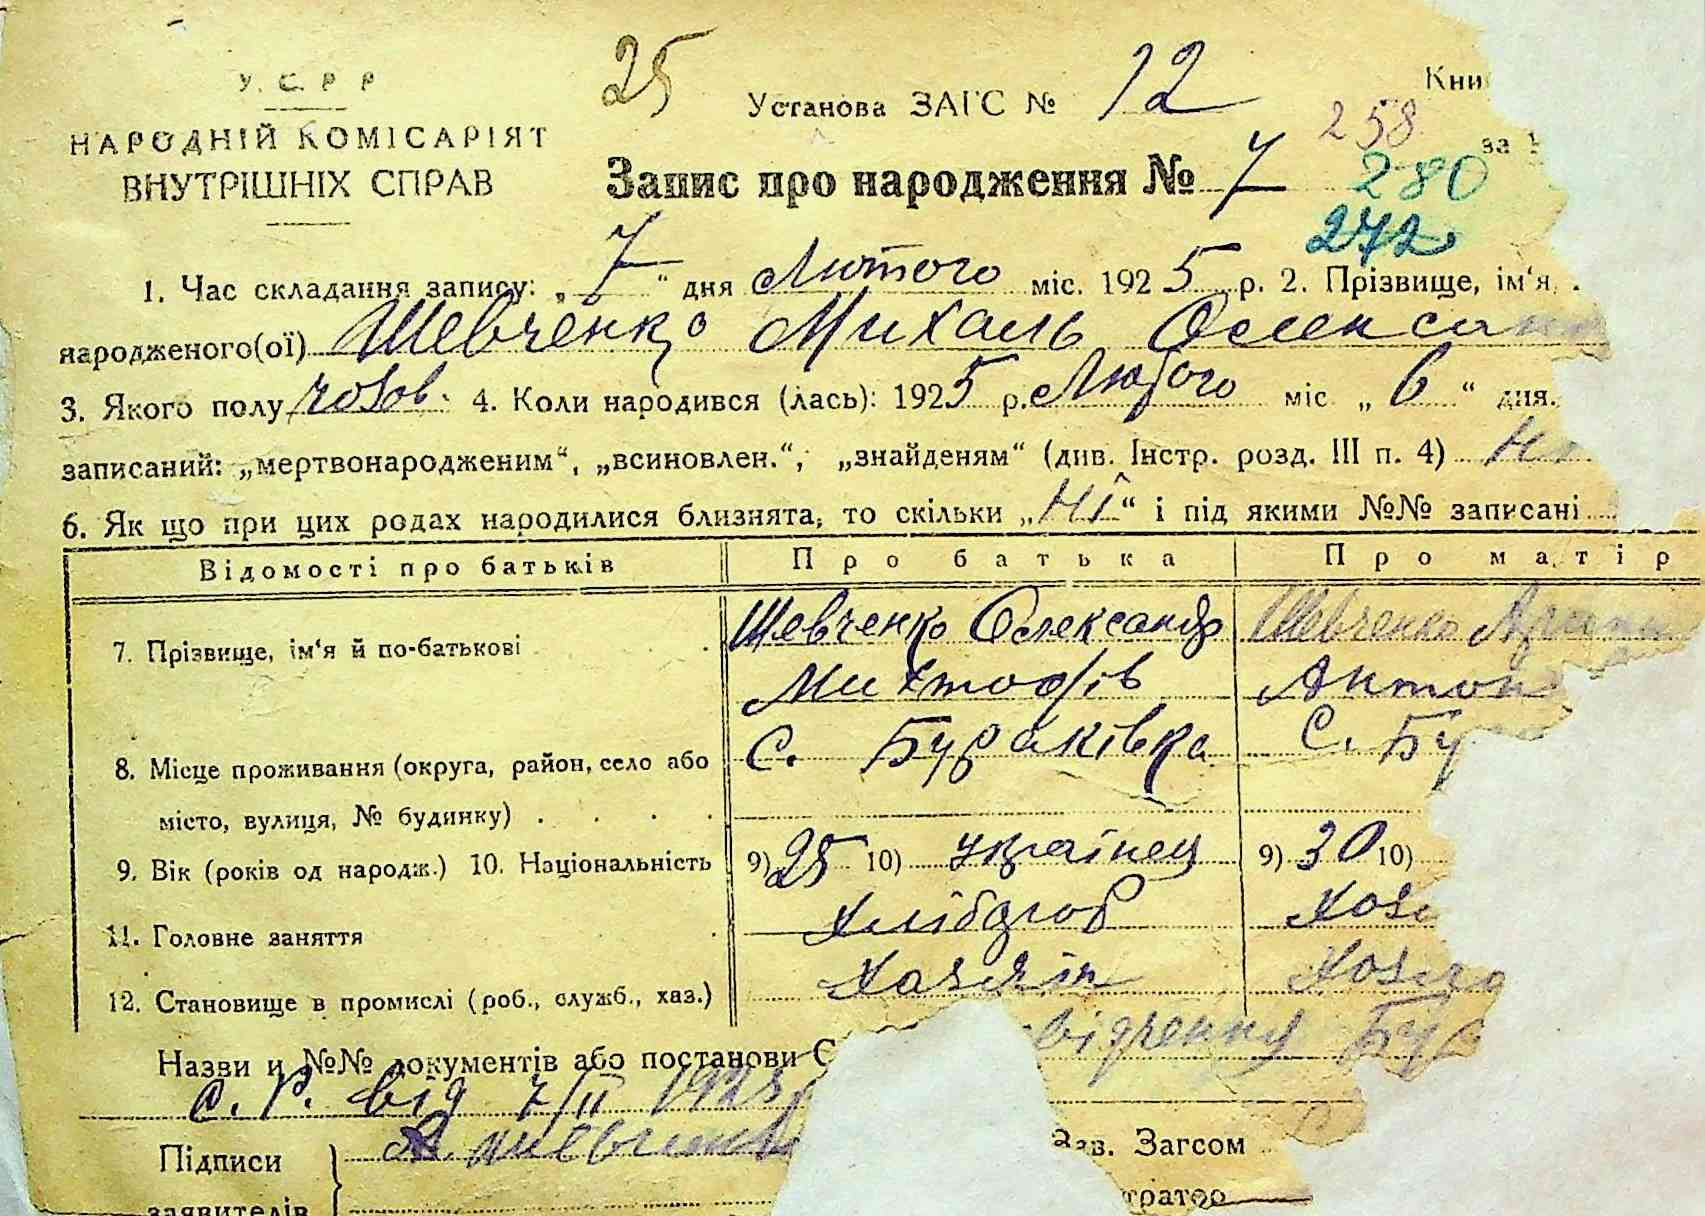 У. С. Р. Р
НАРОДНІЙ КОМІСАРІЯТ
ВНУТРІШНІХ СПРАВ
25
Установа ЗАГС № 12
Кни
258
за
Запис про народження № 7
280
272
1. Час складання запису: „7“ дня Лютого міс. 1925 р. 2. Прізвище, ім'я
народженого(ої) Шевченко Михаль Олексан
3. Якого полу чоловi. 4. Коли народився (лась): 1925 р. Лютого міс „6“ дня.
записаний: „мертвонародженим“, „всиновлен.“, „знайденям“ (див. Інстр. розд. III п. 4) Ні
6. Як що при цих родах народилися близнята, то скільки „Ні“ і під якими №№ записані
Відомості про батьків Про батька Про матір
7. Прізвище, ім'я й по-батькові Шевченко Олександр Шевченко
Антон
8. Місце проживання (округа, район, село або С. Бураківка С. Бу
місто, вулиця, № будинку)
9. Вік (років од народж.) 10. Національність 9) 25 10) українец 9) 30 10)
11. Головне заняття Хлібороб
12. Становище в промислі (роб., служб., хаз.) Хазяїн
Назви и №№ документів або постанови С
С. Р. від 7/II 1925
Підписи А. Шевченко
Зав. Загсом
заявителів
тратор